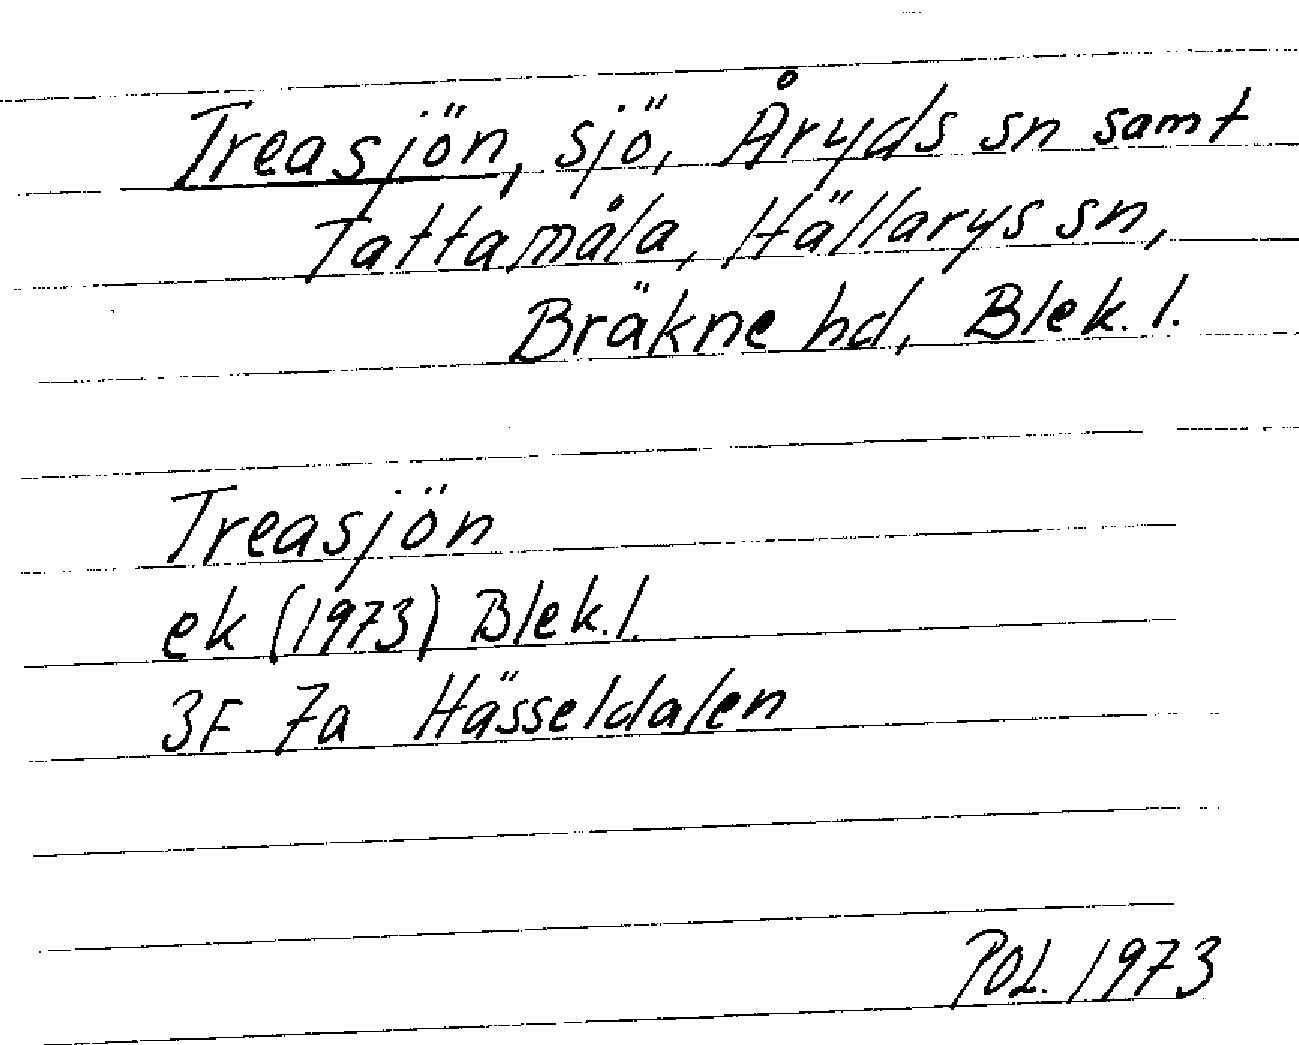 Treasjön, sjö, Åryds sn samt
Tattamåla, Hällarys sn,
Bräkne hd, Blek. l.
Treasjön
ek (1973) Blek. l.
3F 7a Hässeldalen
POL. 1973